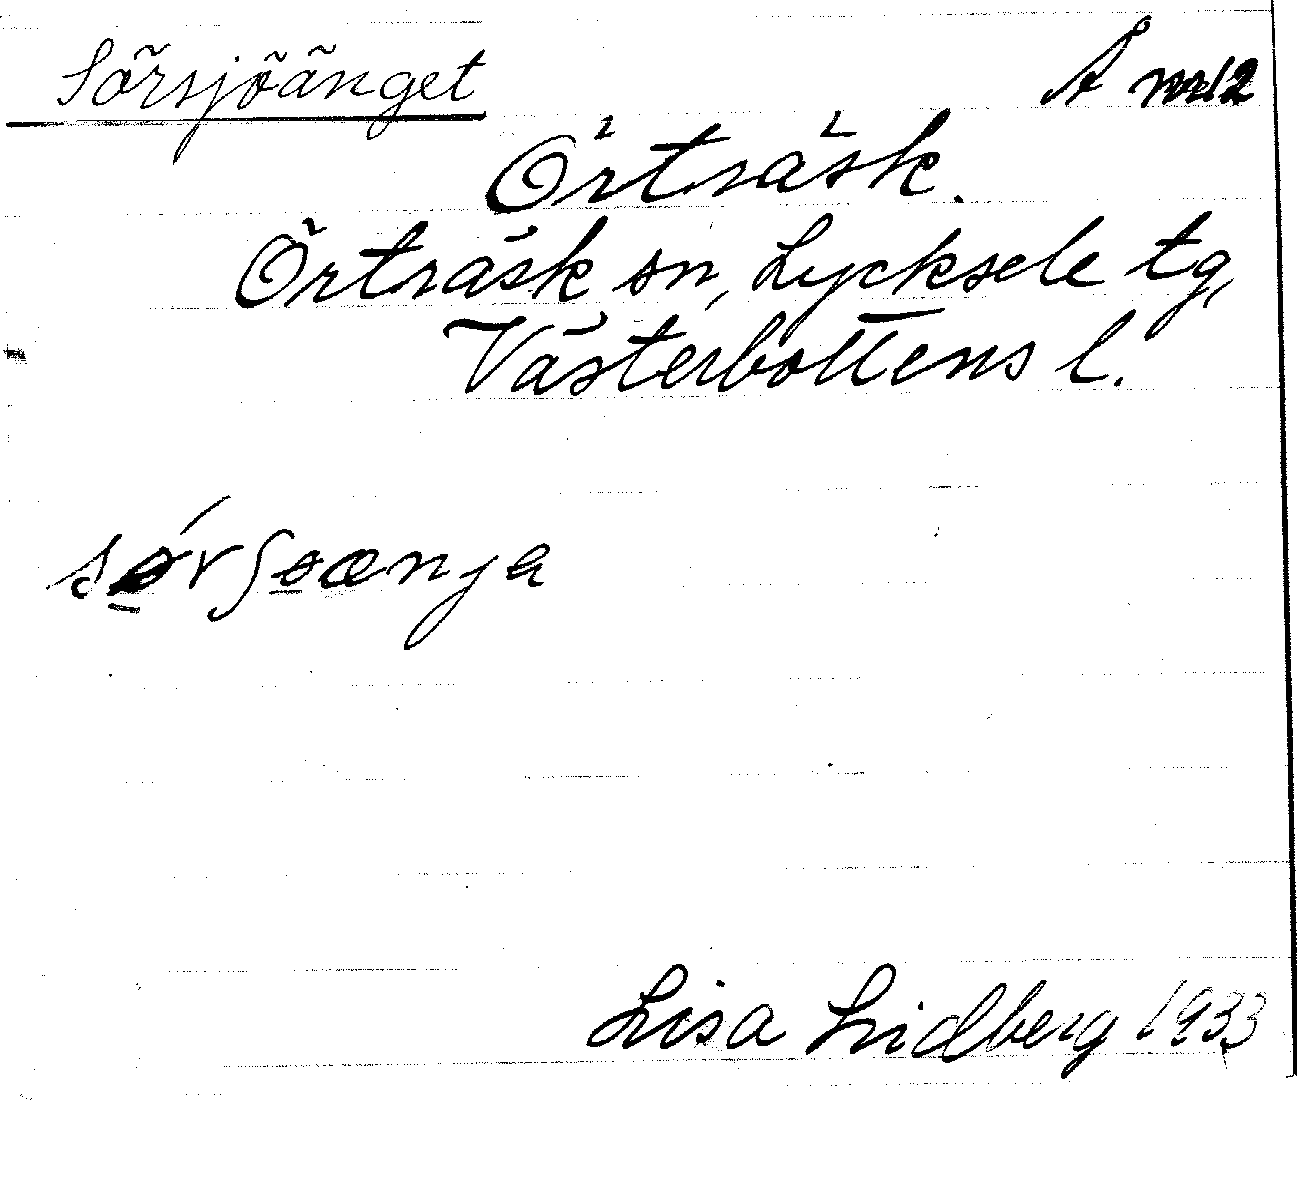 Sörsjöänget
Å nr 12
Örträsk.
Örträsk sn, Lycksele tg,
Västerbottens l.
Lisa Lidberg 1933